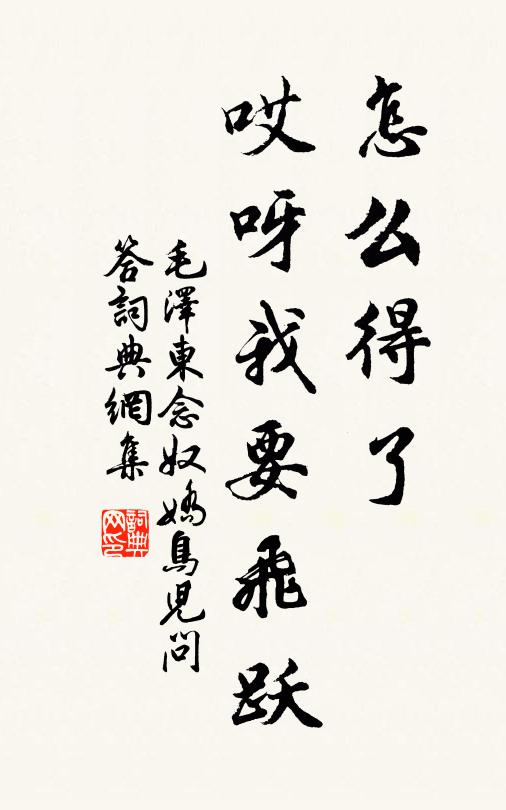 怎么得了
哎呀我要飞跃
毛澤東念奴嬌鳥兒問
答詞典網集
詞典
网印